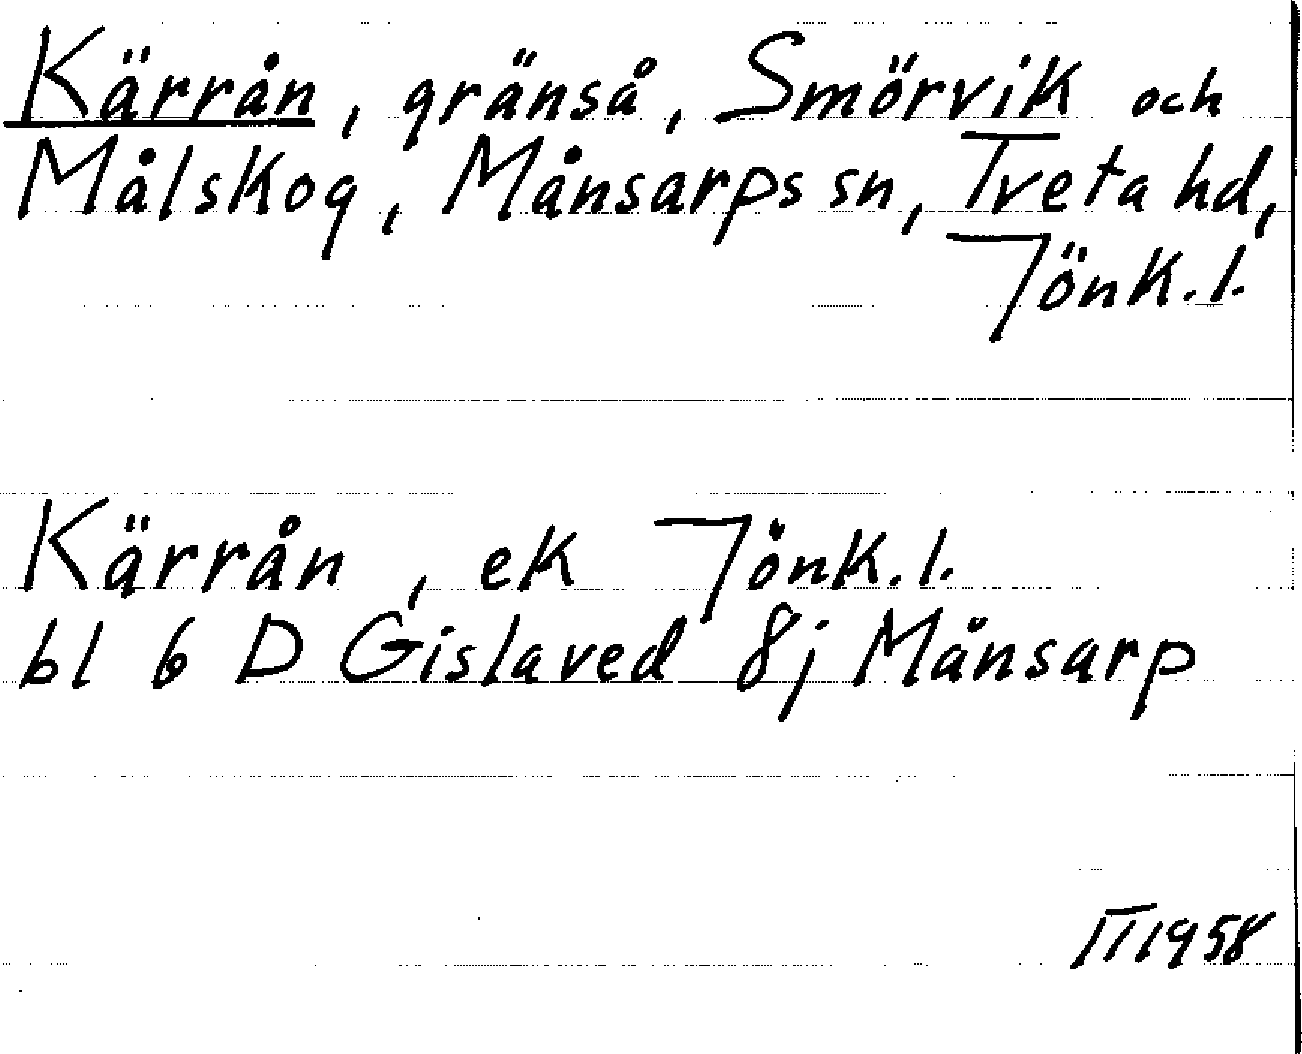 Kärrån, gränså, Smörvik och
Målskog, Månsarps sn, Tveta hd,
Jönk. l.
Kärrån, ek Jönk. l.
bl 6 D Gislaved 8j Månsarp
1958